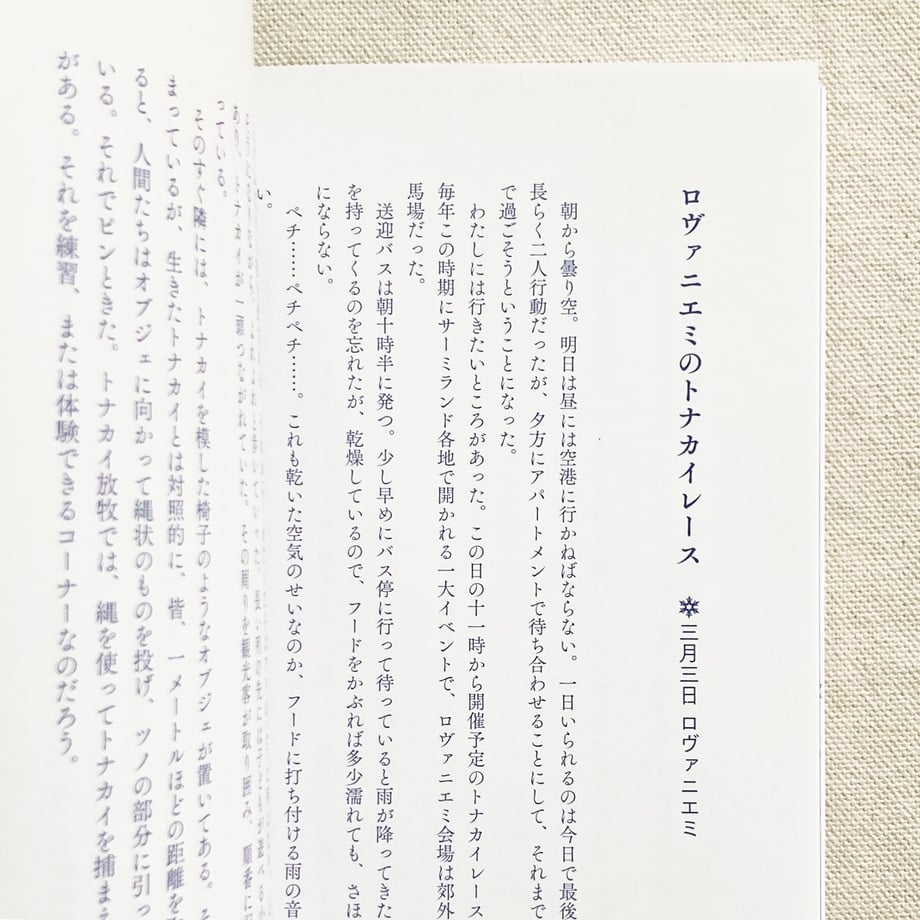 ロヴァニエミのトナカイレース ❄三月三日 ロヴァニエミ
朝から曇り空。明日は昼には空港に行かねばならない。一日いられるのは今日で最後
長らく二人行動だったが、夕方にアパートメントで待ち合わせることにして、それまで
で過ごそうということになった。
わたしには行きたいところがあった。この日の十一時から開催予定のトナカイレース
毎年この時期にサーミランド各地で開かれる一大イベントで、ロヴァニエミ会場は郊外
馬場だった。
送迎バスは朝十時半に発つ。少し早めにバス停に行って待っていると雨が降ってきた
を持ってくるのを忘れたが、乾燥しているので、フードをかぶれば多少濡れても、さほ
にならない。
ペチ……ペチペチ……。これも乾いた空気のせいなのか、フードに打ち付ける雨の音
い。
あり、トナカイが一頭つながれていた。その周りを観光客が取り囲み、順番に
っている。
そのすぐ隣には、トナカイを模した椅子のようなオブジェが置いてある。そ
まっているが、生きたトナカイとは対照的に、皆、一メートルほどの距離を
ると、人間たちはオブジェに向かって縄状のものを投げ、ツノの部分に引っ
いる。それでピンときた。トナカイ放牧では、縄を使ってトナカイを捕まえ
がある。それを練習、または体験できるコーナーなのだろう。